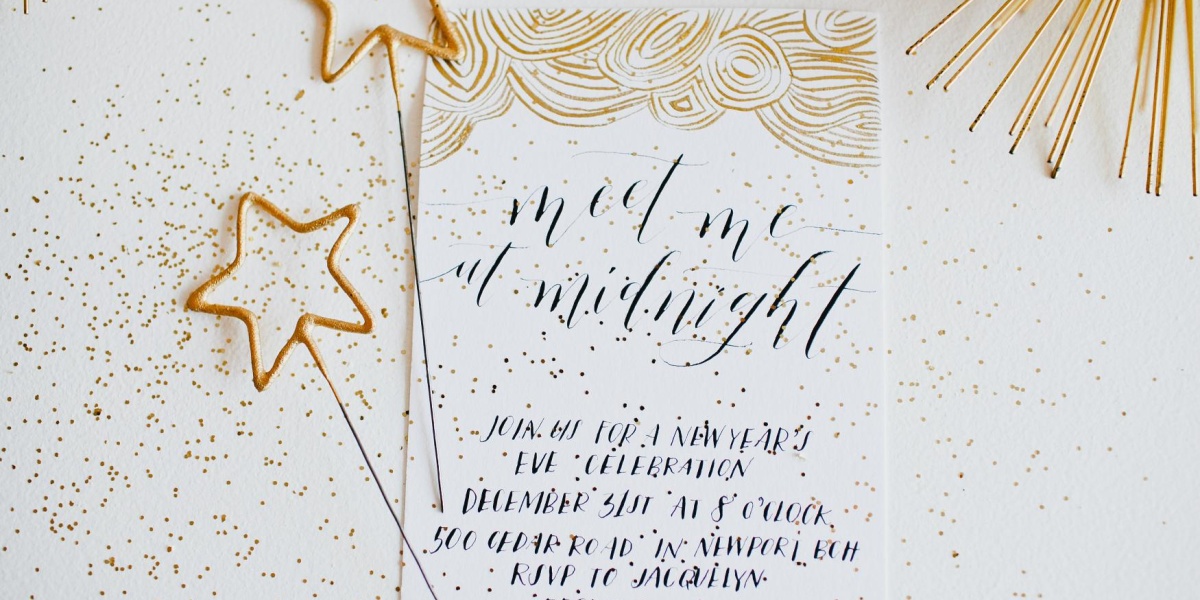 meet me
at midnight
JOIN US FOR A NEW YEAR'S
EVE CELEBRATION
DECEMBER 31ST AT 8 O'CLOCK
500 CEDAR ROAD IN NEWPORT BCH
RSVP TO JACQUELYN